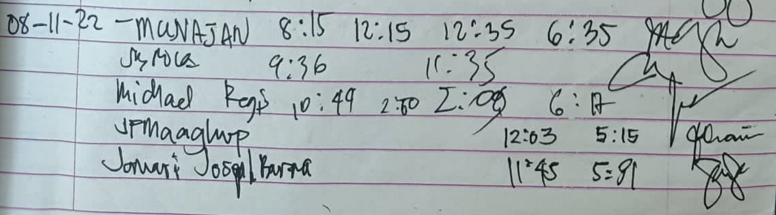 08-11-22 - MUNAJAN 8:15 12:15 12:35 6:35
9:36 11:35
Michael Regs 10:49 2:00 2:08 6:17
JPMaaghup 12:03 5:15
Jomari Joseph Barna 11:45 5:91